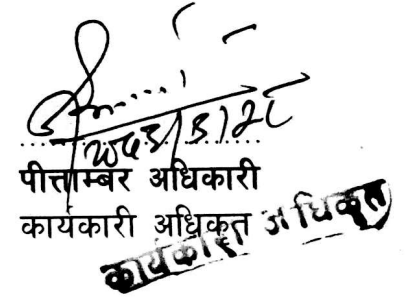 पीताम्बर अधिकारी
कार्यकारी अधिकृत
कार्यकारी अधिकृत